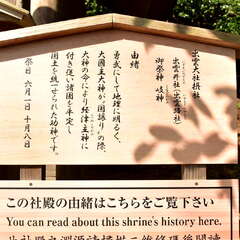 出雲大社摂社
出雲井社(出雲路社)
御祭神 岐神
由緒
勇武にして地理に明るく、
大国主大神が「国譲り」の際、
大神の命により経津主神に
付き従い諸国を平定し
国土を統一せられた功神です。
祭日 六月一日 十月八日
この社殿の由緒はこちらをご覧下さい
You can read about this shrine's history here.